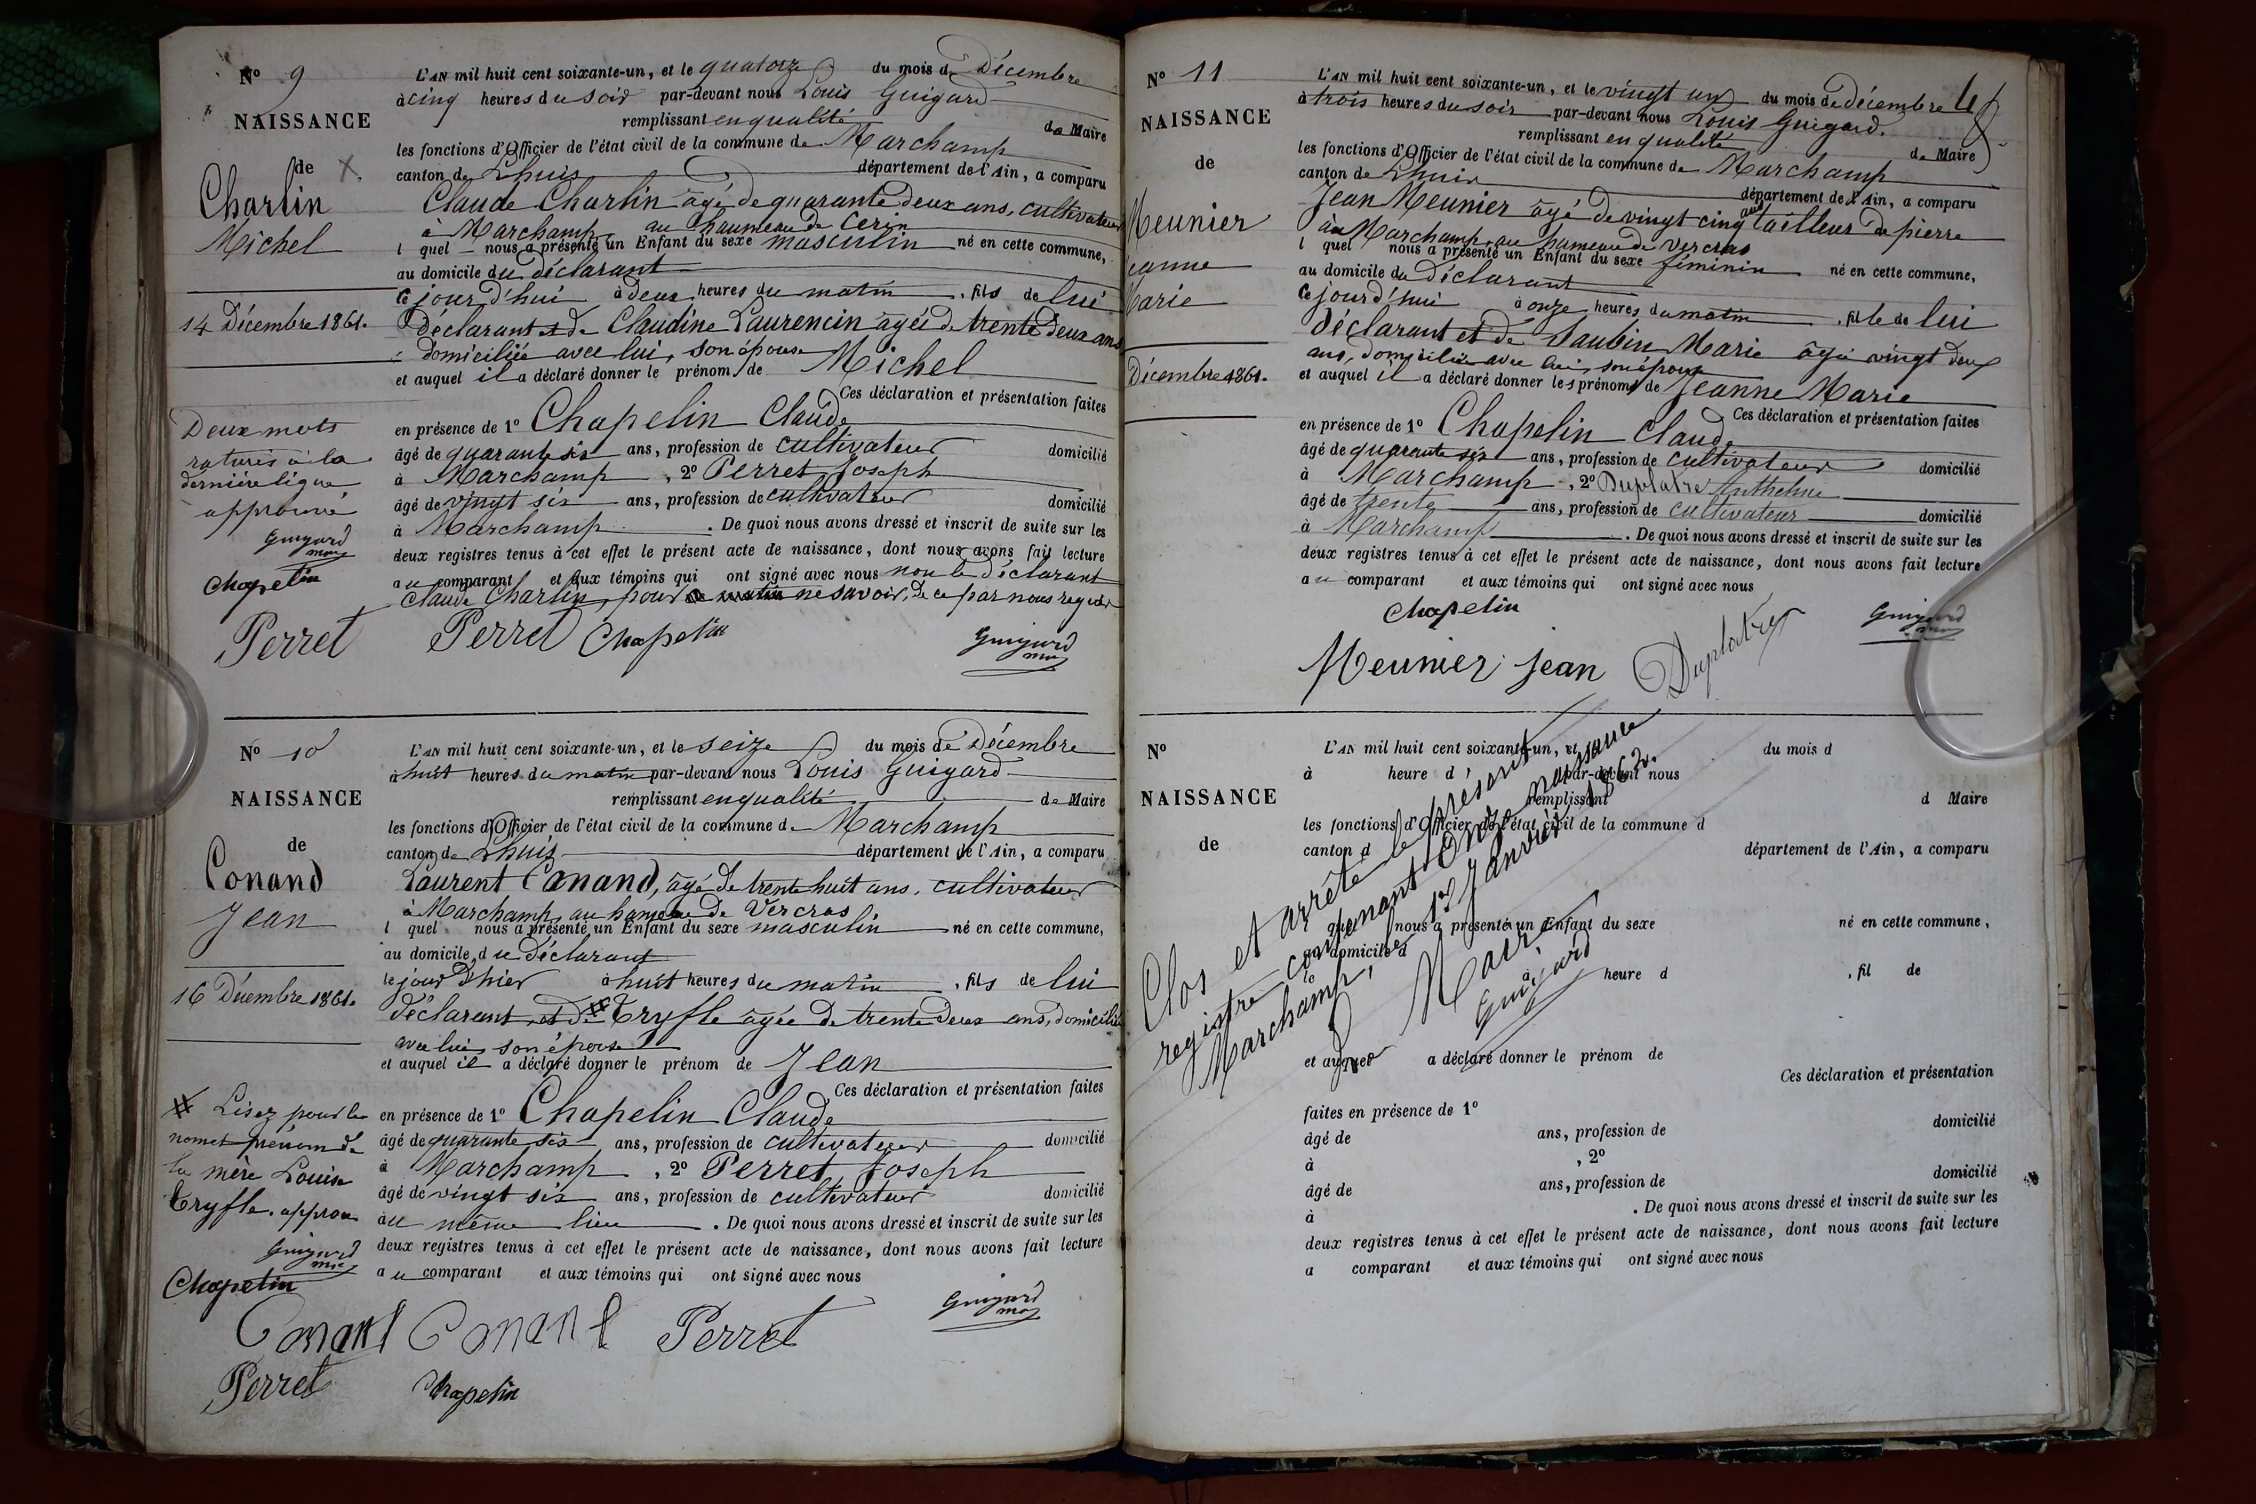 N° 9
NAISSANCE
de
Charlin
Michel
14 Décembre 1861.
Deux mots
raturés à la
dernière ligne
approuvé
Guigard
Chapelin
Perret
L'AN mil huit cent soixante-un, et le quatorze du mois de Décembre
à cinq heures du soir par-devant nous Louis Guigard
remplissant en qualité de Maire
les fonctions d'Officier de l'état civil de la commune de Marchamp
canton de Lhuis département de l'Ain, a comparu
Claude Charlin âgé de quarante deux ans, cultivateur
à Marchamp, au hameau de Cerin
l quel nous a présenté un Enfant du sexe masculin né en cette commune,
au domicile du déclarant
Ce jour d'hui à deux heures du matin, fils de lui
Déclarant et de Claudine Laurencin agée de trente deux ans
domiciliée avec lui, son épouse
et auquel il a déclaré donner le prénom de Michel
Ces déclaration et présentation faites
en présence de 1° Chapelin Claude
âgé de quarante six ans, profession de cultivateur domicilié
à Marchamp, 2° Perret Joseph
âgé de vingt six ans, profession de cultivateur domicilié
à Marchamp. De quoi nous avons dressé et inscrit de suite sur les
deux registres tenus à cet effet le présent acte de naissance, dont nous avons fait lecture
au comparant et aux témoins qui ont signé avec nous non le déclarant
Claude Charlin, pour ne savoir, de ce par nous requis
Perret Chapelin Guigard
N° 10
NAISSANCE
de
Conand
Jean
16 Décembre 1861.
# Lisez pour les
nom et prénom de
la mère Louise
Tryfle. approu
Guigard
Chapelin
L'AN mil huit cent soixante-un, et le seize du mois de Décembre
à huit heures du matin par-devant nous Louis Guigard
remplissant en qualité de Maire
les fonctions d'Officier de l'état civil de la commune de Marchamp
canton de Lhuis département de l'Ain, a comparu
Laurent Conand, âgé de trente huit ans, cultivateur
à Marchamp, au hameau de Vercras
l quel nous a présenté un Enfant du sexe masculin né en cette commune,
au domicile du déclarant
le jour d'hier à huit heures du matin, fils de lui
déclarant, et de # Tryfle âgée de trente deux ans, domiciliée
avec lui, son épouse
et auquel il a déclaré donner le prénom de Jean
Ces déclaration et présentation faites
en présence de 1° Chapelin Claude
âgé de quarante six ans, profession de cultivateur domicilié
à Marchamp, 2° Perret Joseph
âgé de vingt six ans, profession de cultivateur domicilié
au même lieu. De quoi nous avons dressé et inscrit de suite sur les
deux registres tenus à cet effet le présent acte de naissance, dont nous avons fait lecture
au comparant et aux témoins qui ont signé avec nous
Guigard
Conand Conand Perret
Perret Chapelin
N° 11
NAISSANCE
de
Meunier
Jeanne
Marie
Décembre 1861.
L'AN mil huit cent soixante-un, et le vingt un du mois de décembre
à trois heures du soir par-devant nous Louis Guigard.
remplissant en qualité de Maire
les fonctions d'Officier de l'état civil de la commune de Marchamp
canton de Lhuis département de l'Ain, a comparu
Jean Meunier âgé de vingt cinq ans tailleur de pierre
à Marchamp, au hameau de Vercras
l quel nous a présenté un Enfant du sexe féminin né en cette commune,
au domicile du Déclarant
Ce jour d'hui à onze heures du matin, fille de lui
déclarant et de Saubin Marie âgée vingt deux
ans, domiciliée avec lui, son épouse
et auquel il a déclaré donner les prénoms de Jeanne Marie
Ces déclaration et présentation faites
en présence de 1° Chapelin Claude
âgé de quarante six ans, profession de cultivateur domicilié
à Marchamp, 2° Duplatre Anthelme
âgé de trente ans, profession de cultivateur domicilié
à Marchamp. De quoi nous avons dressé et inscrit de suite sur les
deux registres tenus à cet effet le présent acte de naissance, dont nous avons fait lecture
au comparant et aux témoins qui ont signé avec nous
Chapelin Guigard
Meunier Jean Duplatre
N°
NAISSANCE
de
L'AN mil huit cent soixante-un, et du mois d
à heure d par-devant nous
remplissant d Maire
les fonctions d'Officier de l'état civil de la commune d
canton d département de l'Ain, a comparu
quel nous a présenté un Enfant du sexe né en cette commune,
au domicile d
le à heure d, fil de
et auquel a déclaré donner le prénom de
Ces déclaration et présentation
faites en présence de 1°
âgé de ans, profession de domicilié
à, 2°
âgé de ans, profession de domicilié
à. De quoi nous avons dressé et inscrit de suite sur les
deux registres tenus à cet effet le présent acte de naissance, dont nous avons fait lecture
a comparant et aux témoins qui ont signé avec nous
Clos et arrêté le présent
registre contenant Onze naissance
Marchamp, le 1er Janvier 1862.
Maire
Guigard